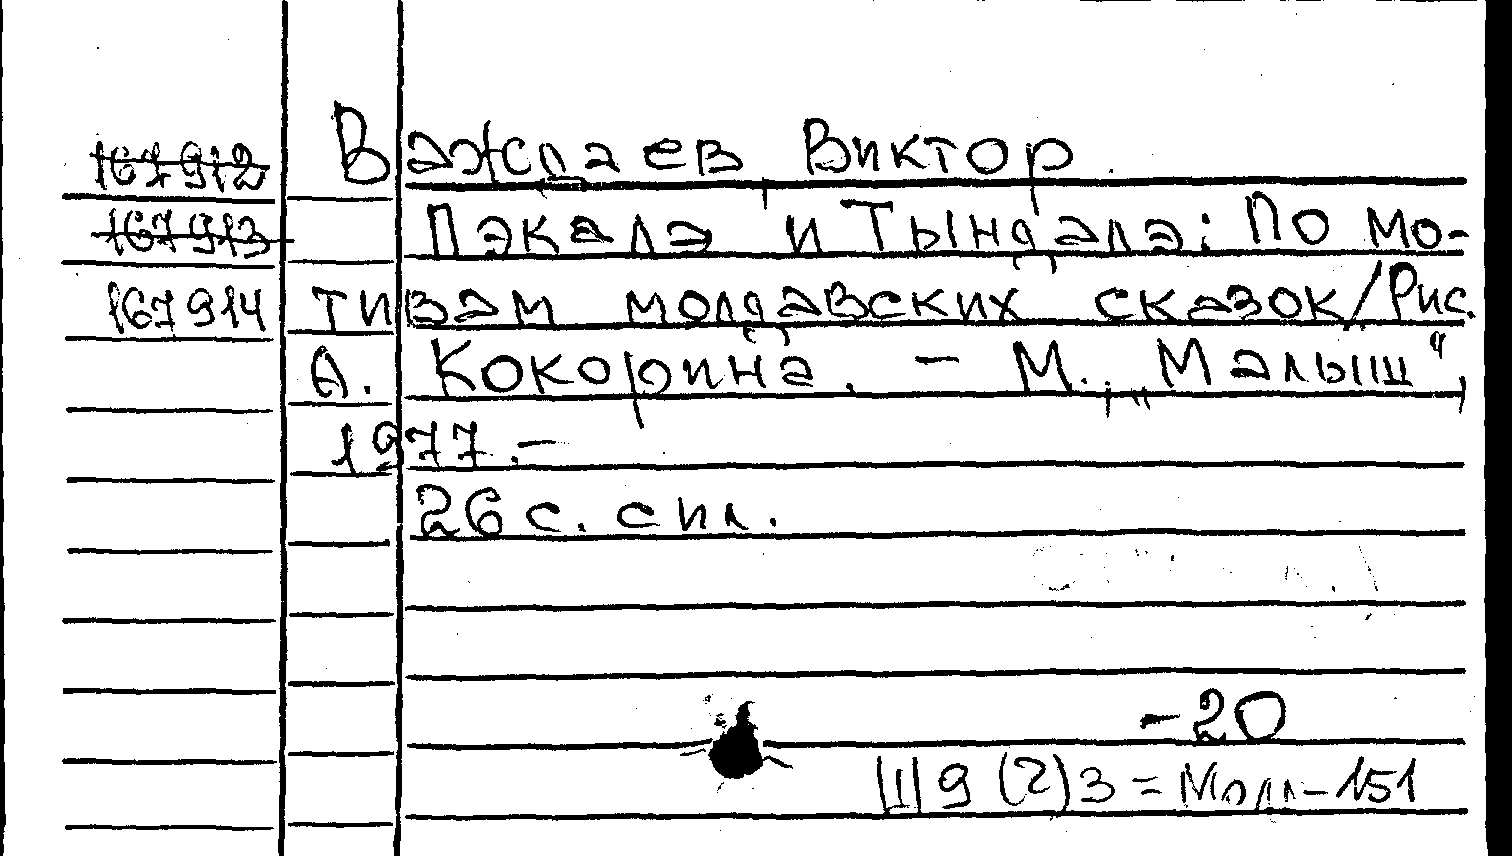 167912 Важдаев Виктор
167913 Пэкалэ и Тындалэ: По мо-
167914 тивам молдавских сказок/Рис.
А. Кокорина. - М., „Малыш“,
1977.-
26 с. с ил.
-20
Ш9(2)3=Молд-151